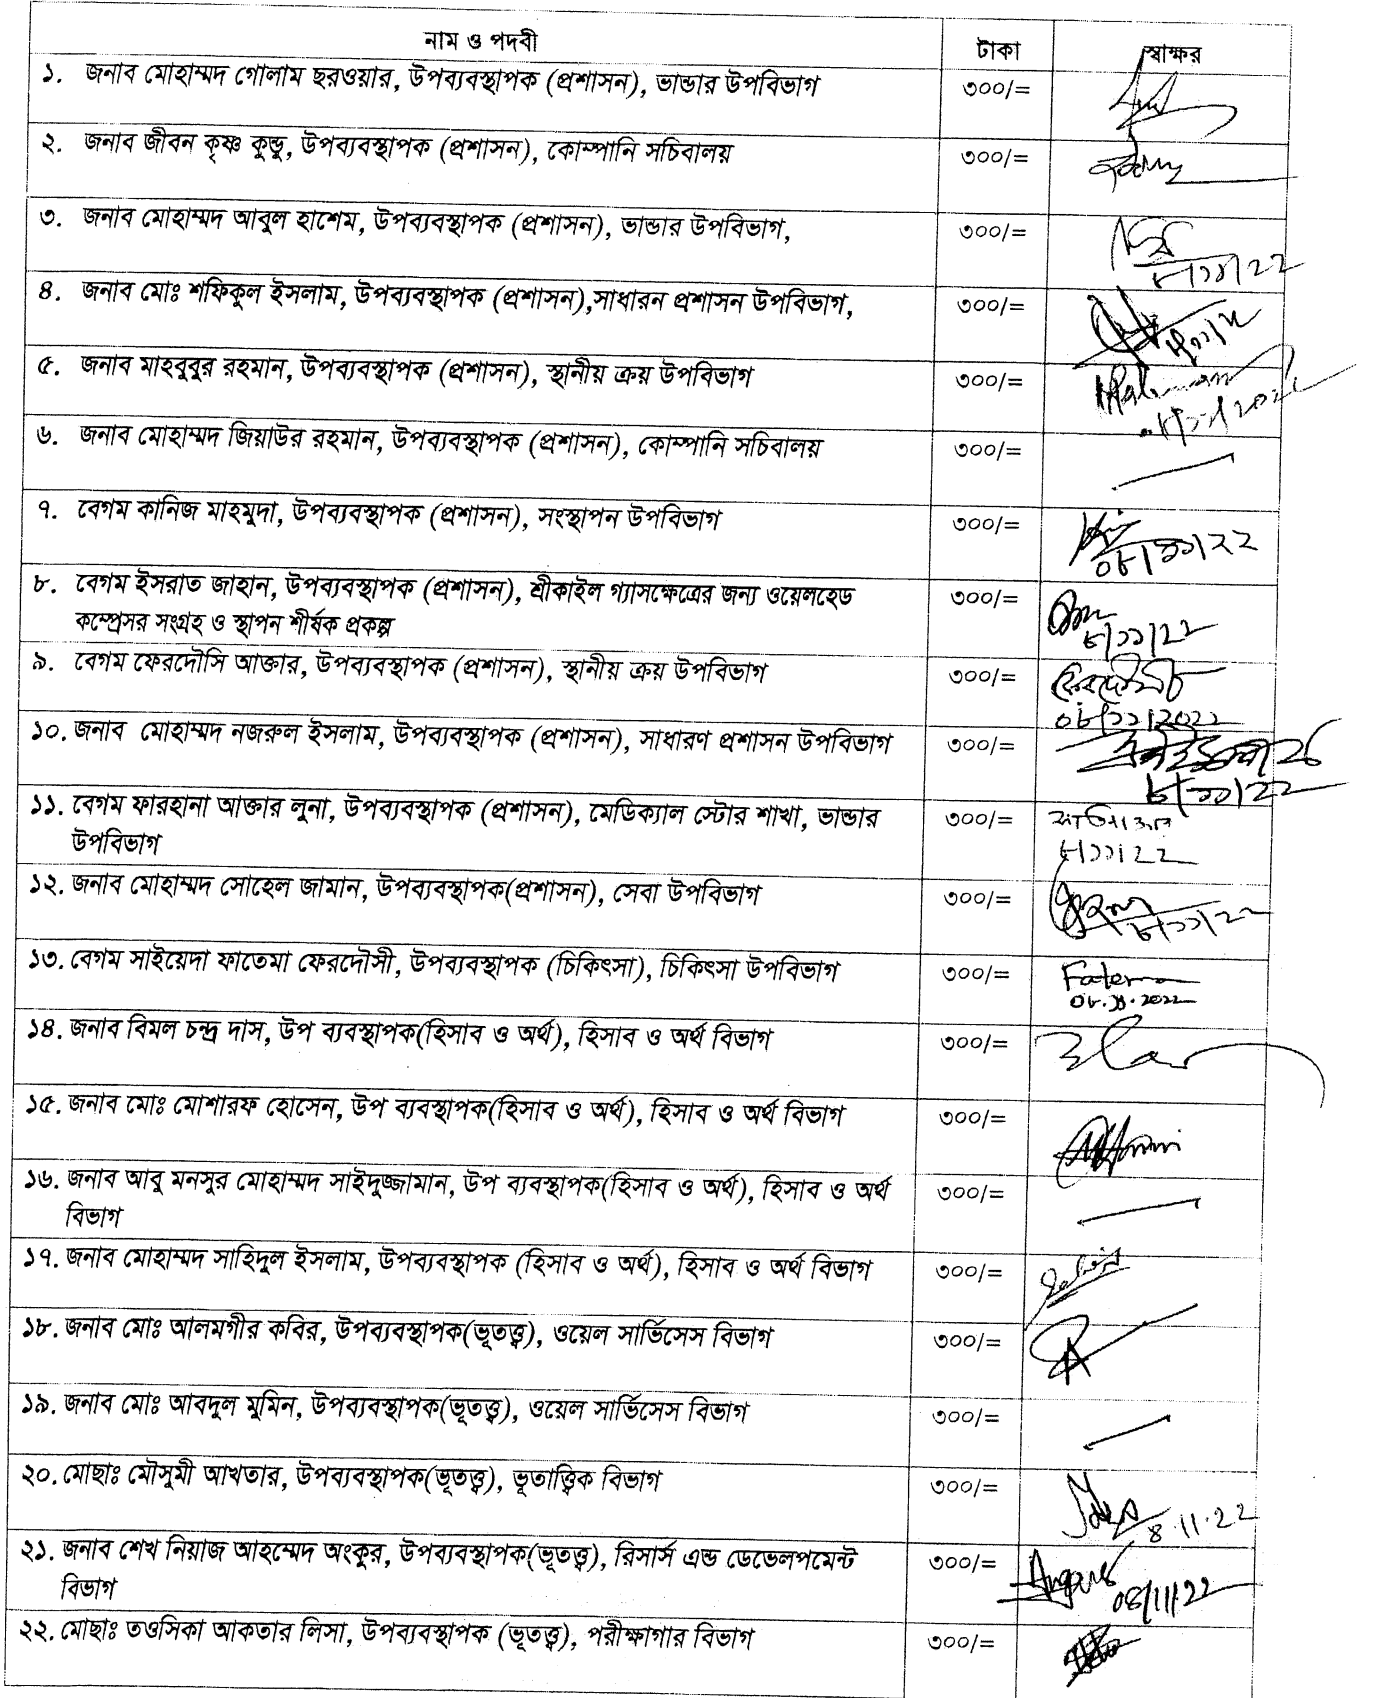 নাম ও পদবী টাকা স্বাক্ষর
১. জনাব মোহাম্মদ গোলাম ছরওয়ার, উপব্যবস্থাপক (প্রশাসন), ভান্ডার উপবিভাগ ৩০০/=
২. জনাব জীবন কৃষ্ণ কুন্ডু, উপব্যবস্থাপক (প্রশাসন), কোম্পানি সচিবালয় ৩০০/=
৩. জনাব মোহাম্মদ আবুল হাশেম, উপব্যবস্থাপক (প্রশাসন), ভান্ডার উপবিভাগ, ৩০০/=
৮/১১/২২
৪. জনাব মোঃ শফিকুল ইসলাম, উপব্যবস্থাপক (প্রশাসন),সাধারন প্রশাসন উপবিভাগ, ৩০০/=
৫. জনাব মাহবুবুর রহমান, উপব্যবস্থাপক (প্রশাসন), স্থানীয় ক্রয় উপবিভাগ ৩০০/=
৬. জনাব মোহাম্মদ জিয়াউর রহমান, উপব্যবস্থাপক (প্রশাসন), কোম্পানি সচিবালয় ৩০০/=
৭. বেগম কানিজ মাহমুদা, উপব্যবস্থাপক (প্রশাসন), সংস্থাপন উপবিভাগ ৩০০/=
০৮/১১/২২
৮. বেগম ইসরাত জাহান, উপব্যবস্থাপক (প্রশাসন), শ্রীকাইল গ্যাসক্ষেত্রের জন্য ওয়েলহেড ৩০০/=
কম্প্রেসর সংগ্রহ ও স্থাপন শীর্ষক প্রকল্প
৮/১১/২২
৯. বেগম ফেরদৌসি আক্তার, উপব্যবস্থাপক (প্রশাসন), স্থানীয় ক্রয় উপবিভাগ ৩০০/= ফেরদৌসি
০৮/১১/২০২২
১০. জনাব মোহাম্মদ নজরুল ইসলাম, উপব্যবস্থাপক (প্রশাসন), সাধারণ প্রশাসন উপবিভাগ ৩০০/=
৮/১১/২২
১১. বেগম ফারহানা আক্তার লুনা, উপব্যবস্থাপক (প্রশাসন), মেডিক্যাল স্টোর শাখা, ভান্ডার ৩০০/=
উপবিভাগ ৮/১১/২২
১২. জনাব মোহাম্মদ সোহেল জামান, উপব্যবস্থাপক(প্রশাসন), সেবা উপবিভাগ ৩০০/=
৮/১১/২২
১৩. বেগম সাইয়েদা ফাতেমা ফেরদৌসী, উপব্যবস্থাপক (চিকিৎসা), চিকিৎসা উপবিভাগ ৩০০/= Fatema
০৮.১১.২০২২
১৪. জনাব বিমল চন্দ্র দাস, উপ ব্যবস্থাপক(হিসাব ও অর্থ), হিসাব ও অর্থ বিভাগ ৩০০/=
১৫. জনাব মোঃ মোশারফ হোসেন, উপ ব্যবস্থাপক(হিসাব ও অর্থ), হিসাব ও অর্থ বিভাগ ৩০০/=
১৬. জনাব আবু মনসুর মোহাম্মদ সাইদুজ্জামান, উপ ব্যবস্থাপক(হিসাব ও অর্থ), হিসাব ও অর্থ ৩০০/=
বিভাগ
১৭. জনাব মোহাম্মদ সাহিদুল ইসলাম, উপব্যবস্থাপক (হিসাব ও অর্থ), হিসাব ও অর্থ বিভাগ ৩০০/=
১৮. জনাব মোঃ আলমগীর কবির, উপব্যবস্থাপক(ভূতত্ত্ব), ওয়েল সার্ভিসেস বিভাগ ৩০০/=
১৯. জনাব মোঃ আবদুল মুমিন, উপব্যবস্থাপক(ভূতত্ত্ব), ওয়েল সার্ভিসেস বিভাগ ৩০০/=
২০. মোছাঃ মৌসুমী আখতার, উপব্যবস্থাপক(ভূতত্ত্ব), ভূতাত্ত্বিক বিভাগ ৩০০/=
8.11.22
২১. জনাব শেখ নিয়াজ আহম্মেদ অংকুর, উপব্যবস্থাপক(ভূতত্ত্ব), রিসার্স এন্ড ডেভেলপমেন্ট ৩০০/=
বিভাগ 08/11/22
২২. মোছাঃ তওসিকা আকতার লিসা, উপব্যবস্থাপক (ভূতত্ত্ব), পরীক্ষাগার বিভাগ ৩০০/=